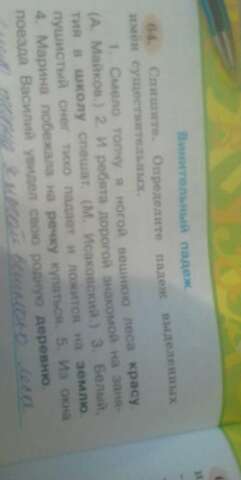 Винительный падеж.
64. Спишите. Определите падеж выделенных
имён существительных.
1. Смело топчу я ногой вешнюю леса красу.
(А. Майков.) 2. И ребята дорогой знакомой на заня-
тия в школу спешат. (М. Исаковский.) 3. Белый,
пушистый снег тихо падает и ложится на землю.
4. Марина побежала на речку купаться. 5. Из окна
поезда Василий увидел свою родную деревню.